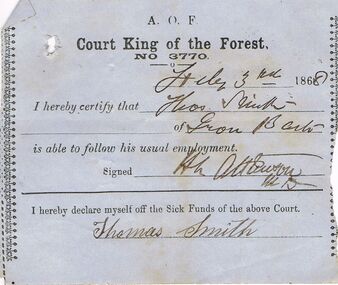 A. O. F.
Court King of the Forest,
NO 3770.
3rd 1868
I hereby certify that Thos Smith
of Iron Bark
is able to follow his usual employment.
Signed
I hereby declare myself off the Sick Funds of the above Court.
Thomas Smith